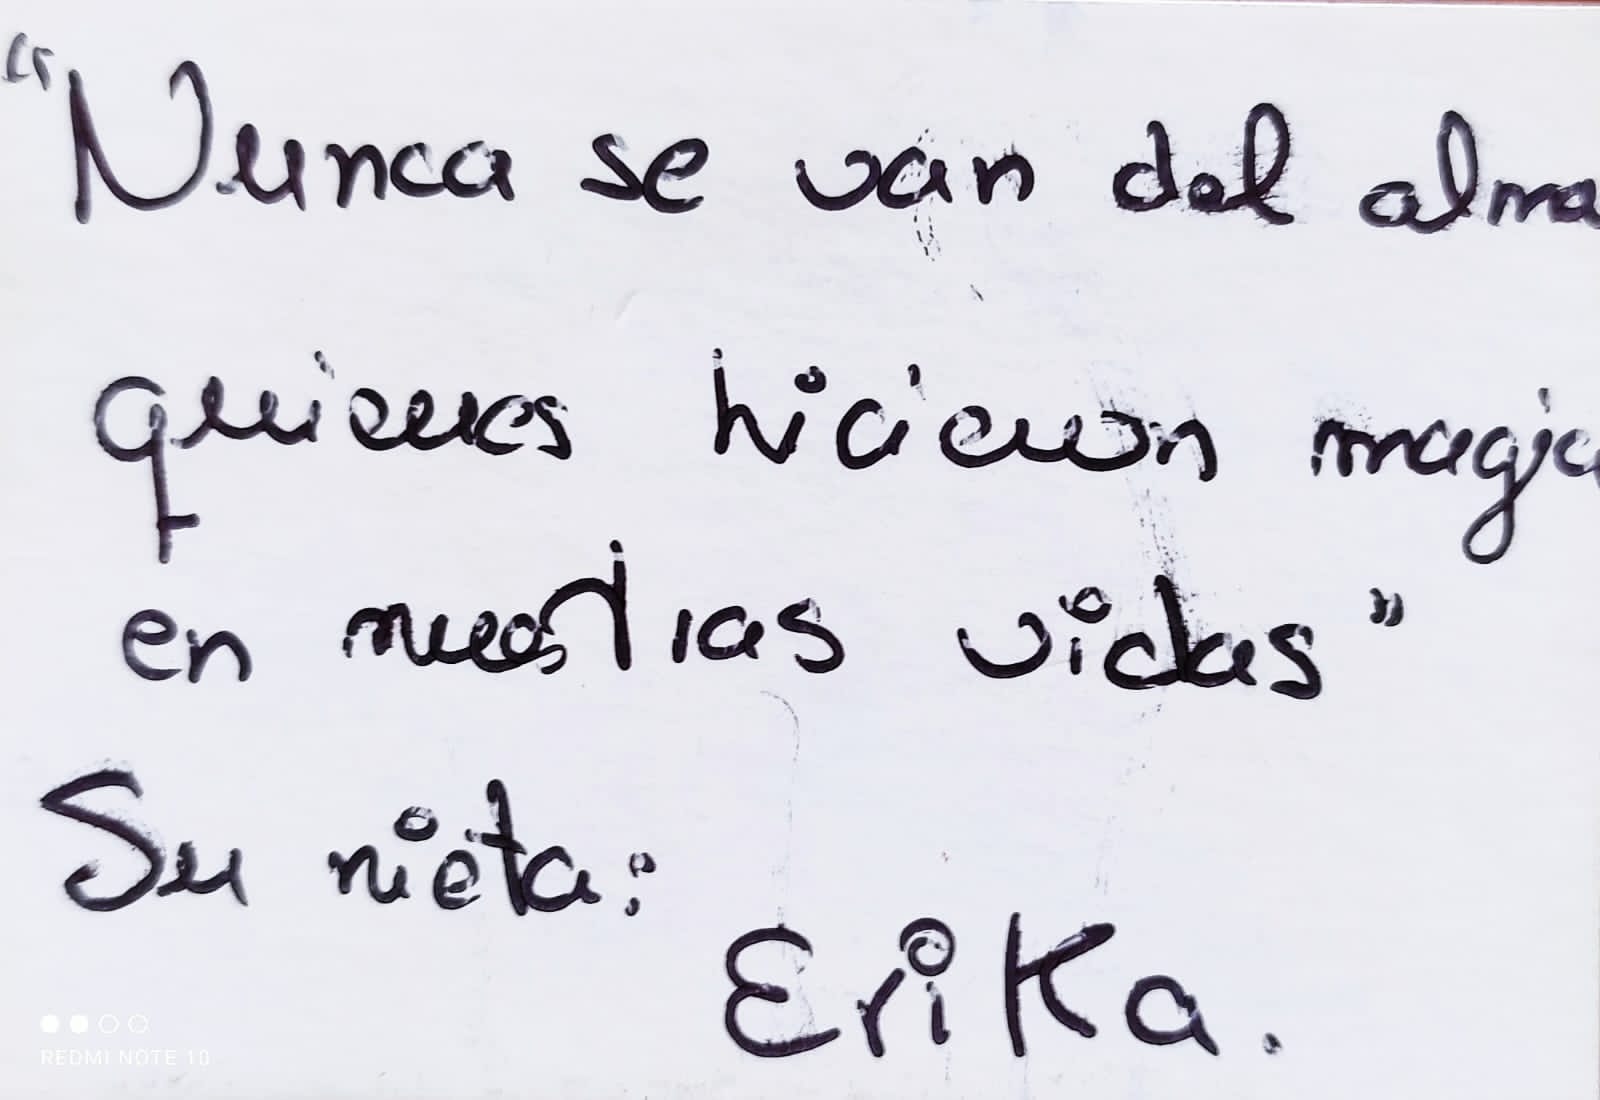 "Nunca se van del alma
quienes hicieron magia
en nuestras vidas"
Su nieta:
Erika.
REDMI NOTE 10